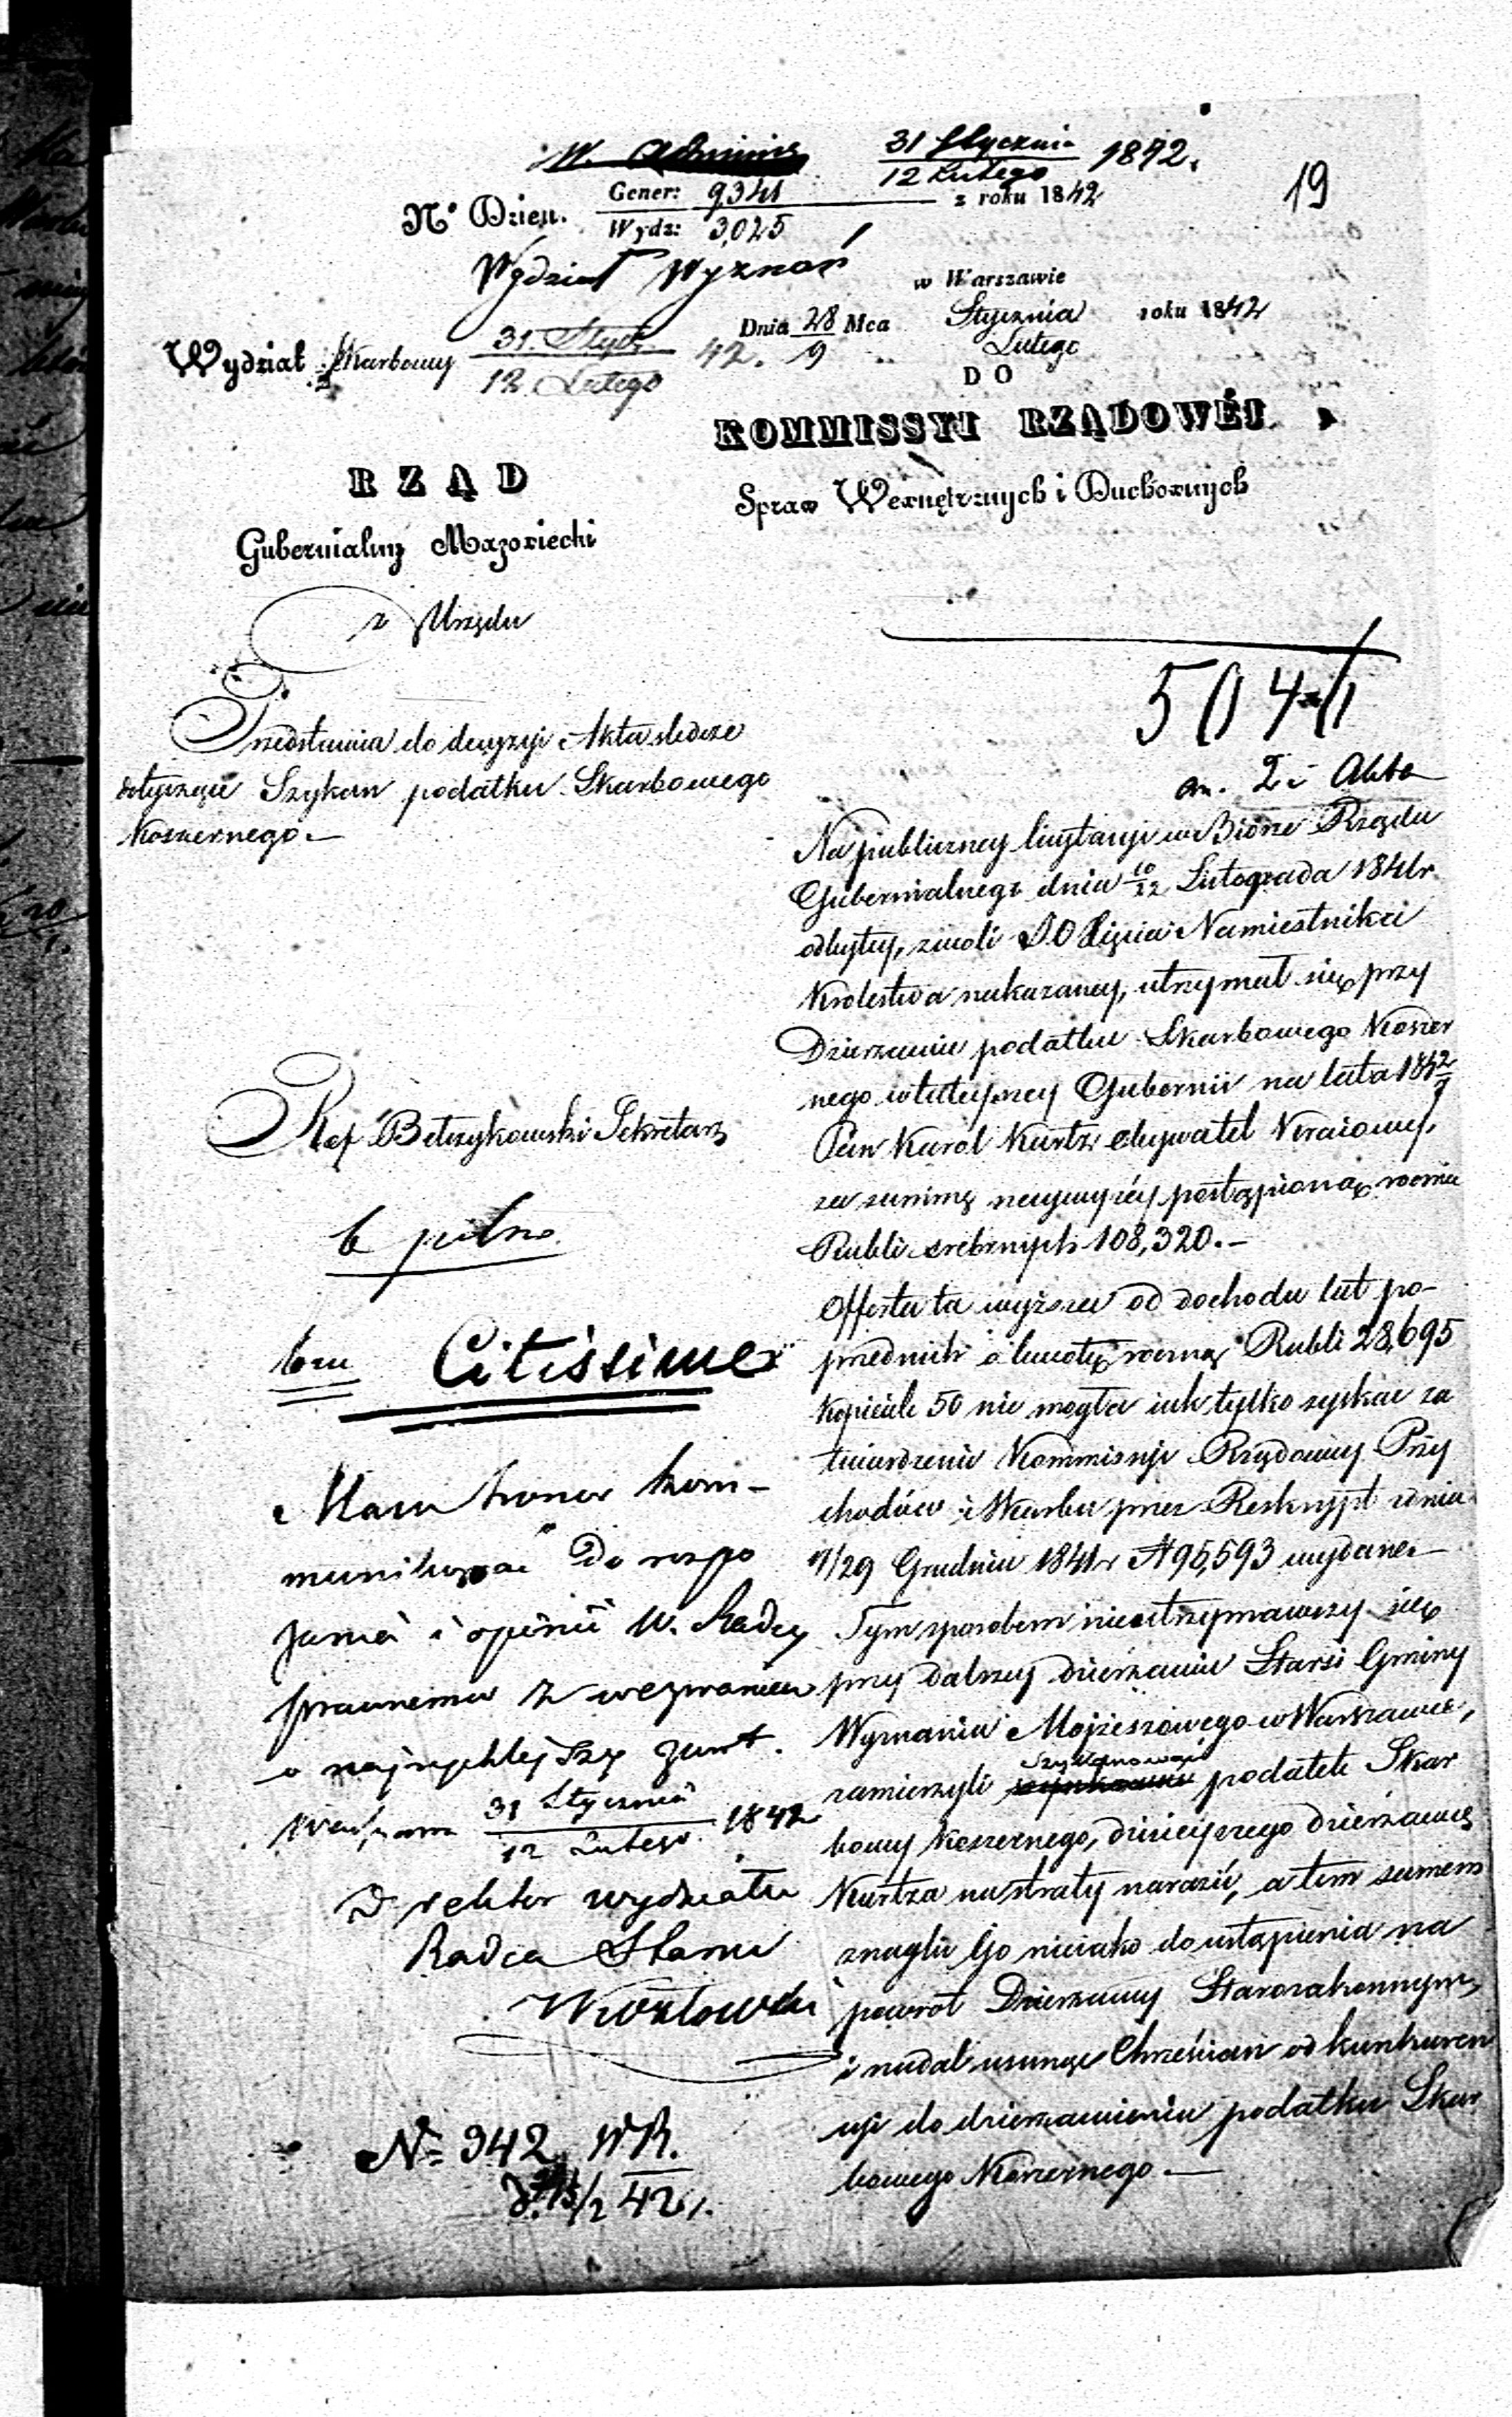 W. Adminis
31 Stycznia 1842.
12 Lutego
19
Nº Dzien. Gener: 9341 z roku 1842
Wydz: 3,025
Wydział Wyznań
w Warszawie
Dnia 28 Mca Stycznia roku 1842
9 Lutego
Wydział Skarbowy 31. Stycz 42.
12. Lutego
DO
KOMMISSYI RZĄDOWÉJ
Spraw Wewnętrznych i Duchownych
RZĄD
Gubernialny Mazowiecki
z Urzędu
504
an. 2 Akta
Przedstawia do decyzyi Akta śledcze
dotyczące Szykan podatku Skarbowego
Koszernego.—
Ref. Betzykowski Sekretarz
b pilno
bru Citissime
Mam honor kom-
munikować Do rozpo
znania i opinii W. Radcy
prawnemu z wezwaniem
o najrychlejszy zwrot.
31 Stycznia 1842
12 Lutego.
Dyrektor wydziału
Radca Stanu
Kozłowski
Nº 942 WR.
42 r.
Na publiczney licytacyi w Biórze Rządu
Gubernialnego dnia 10/22 Listopada 1841 r.
odbytey, z woli JO Xięcia Namiestnika
Krolestwa nakazaney, utrzymał się przy
Dzierzawie podatku Skarbowego Koszer
nego w tuteyszey Gubernii na lata 1842
Pan Karol Kurtz obywatel Kraiowy,
za summę naywyżéy postąpioną rocznie
Rubli srebrnych 108,320.—
Offerta ta wyższa od dochodu lat po-
przednich o kwotę roczną Rubli 28,695
Kopieiek 50 nie mogła iak tylko zyskać za
twierdzenie Kommissyi Rządowey Przy
chodów i Skarbu przez Reskrypt z dnia
17/29 Grudnia 1841 r. N 95,593 wydane.—
Tym sposobem nieutrzymawszy się
przy dalszey dzierzawie Starsi Gminy
Wyznania Mojżeszowego w Warszawie,
zamierzyli Szykanować podatek Skar
bowy Koszernego, dzisieyszego dzierzawcę
Kurtza na straty narazić, a tem samem
znaglić Go nieiako do ustąpienia na
powrót Dzierzawy Starozakonnym,
i nadal usunąć Chrześcian od konkuren
cyi do dzierzawienia podatku Skar
bowego Koszernego.—